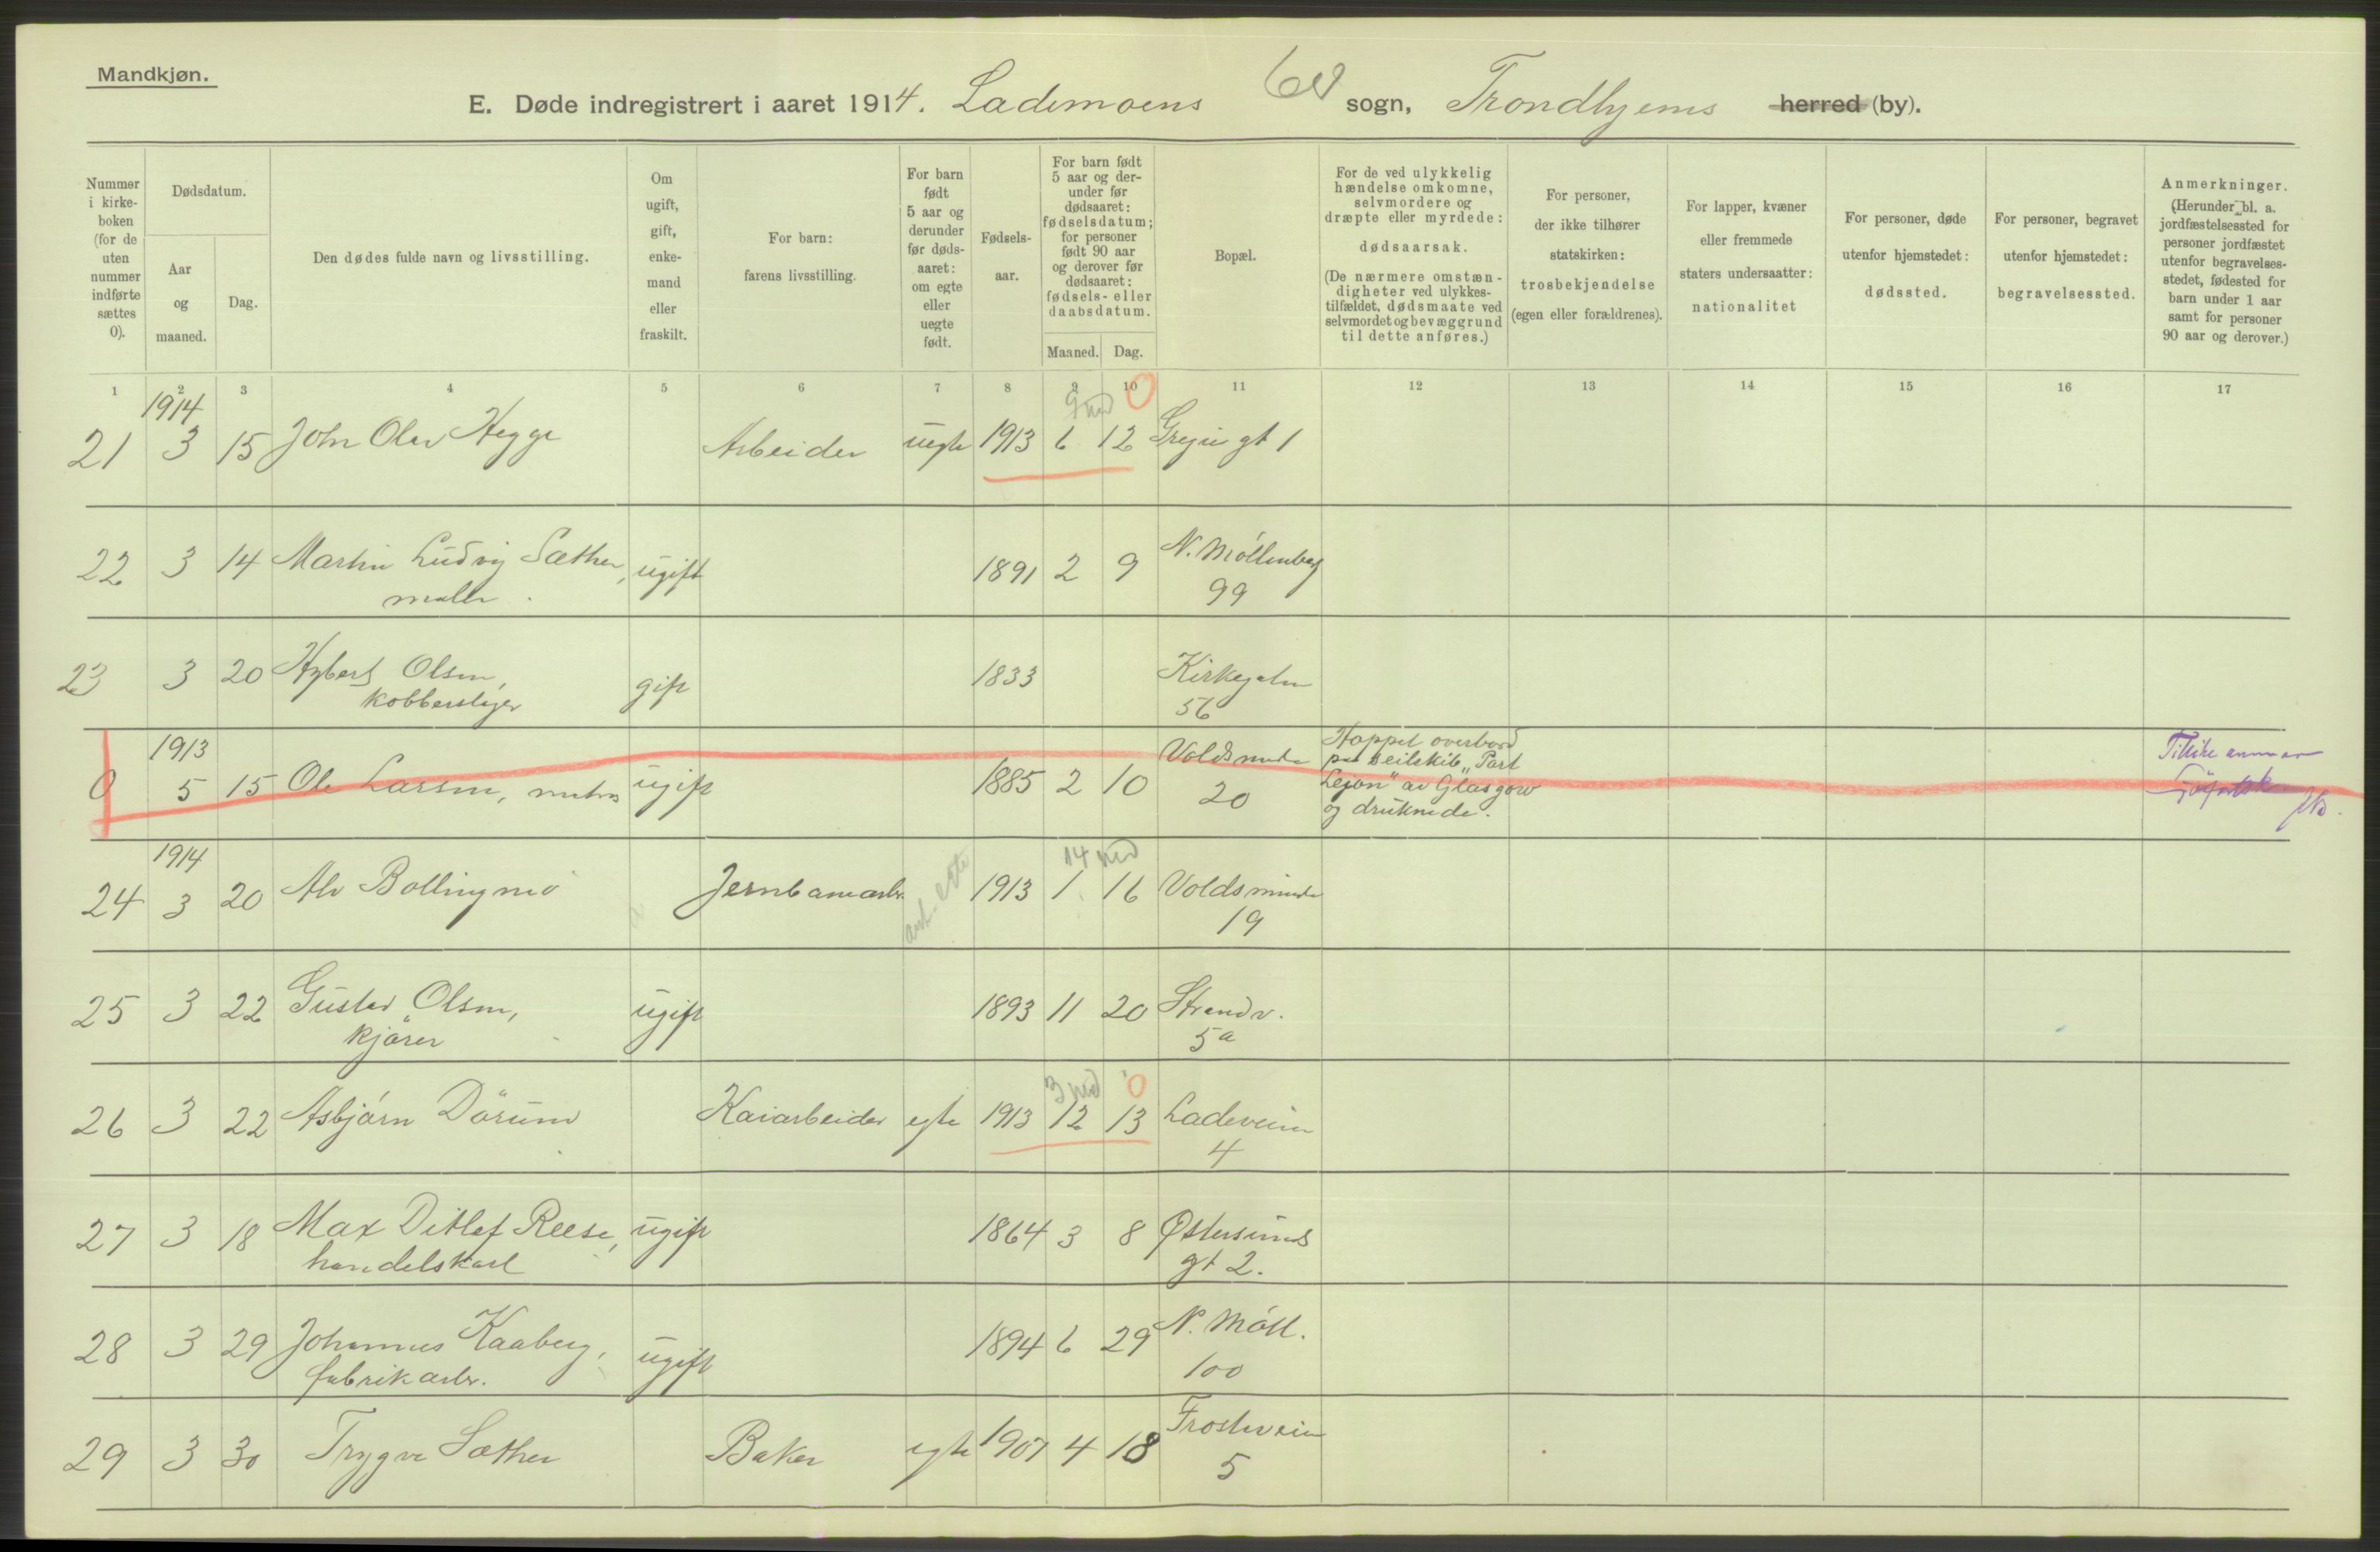 Mandkjøn.
E. Døde indregistrert i aaret 1914. Lademoens sogn, Trondhjems herred (by).
Nummer i kirkeboken (for de uten nummer indførte sættes 0).
Dødsdatum.
Aar og maaned.
Dag.
Den dødes fulde navn og livsstilling.
Om ugift, gift, enkemand eller fraskilt.
For barn: farens livsstilling.
For barn født 5 aar og derunder før dødsaaret: om egte eller uegte født.
Fødselsaar.
For barn født 5 aar og derunder før dødsaaret: fødselsdatum; for personer født 90 aar og derover før dødsaaret: fødsels- eller daabsdatum.
Maaned. Dag.
Bopæl.
For de ved ulykkelig hændelse omkomne, selvmordere og dræpte eller myrdede: dødsaarsak. (De nærmere omstændigheter ved ulykkestilfældet, dødsmaate ved selvmordet og bevæggrund til dette anføres.)
For personer, der ikke tilhører statskirken: trosbekjendelse (egen eller forældrenes).
For lapper, kvæner eller fremmede staters undersaatter: nationalitet
For personer, døde utenfor hjemstedet: dødssted.
For personer, begravet utenfor hjemstedet: begravelsessted.
Anmerkninger. (Herunder bl. a. jordfæstelsessted for personer jordfæstet utenfor begravelsesstedet, fødested for barn under 1 aar samt for personer 90 aar og derover.)
1 2 3 4 5 6 7 8 9 10 11 12 13 14 15 16 17
1914
9 md 0
21 3 15 John Olav Hegge Arbeider uegte 1913 6 12 gt 1
22 3 14 Martin Ludvig Sæther, ugift 1891 2 9 N. Möllenberg
maler 99
23 3 20 Olsen, gift 1833 Kirkegaten
kobberslager 56
1913
0 5 15 Ole Larsen, matros ugift 1885 2 10 Voldsminde
20
Hoppet overbord
paa seilskib "Port
Lejon" av Glasgow
og druknede.
1914
14 md
24 3 20 Alv Bollingmo Jernbanearb. ant. egte 1913 1 16 Voldsminde
19
25 3 22 Gustav Olsen, ugift 1893 11 20 Strandv.
kjører 5a
3 md 0
26 3 22 Asbjörn Dörum Kaiarbeider egte 1913 12 13 Ladeveien
4
27 3 18 Max Ditlef Reese, ugift 1864 3 8 Østersunds
handelskarl gt 2.
28 3 29 Johannes Kaaberg, ugift 1894 6 29 N. Möll.
fabrikarb. 100
29 3 30 Trygve Sæther Baker egte 1907 4 18 Frostaveien
5